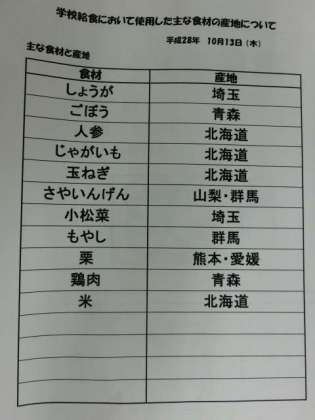 学校給食において使用した主な食材の産地について
平成28年 10月13日(木)
主な食材と産地
食材 産地
しょうが 埼玉
ごぼう 青森
人参 北海道
じゃがいも 北海道
玉ねぎ 北海道
さやいんげん 山梨・群馬
小松菜 埼玉
もやし 群馬
栗 熊本・愛媛
鶏肉 青森
米 北海道